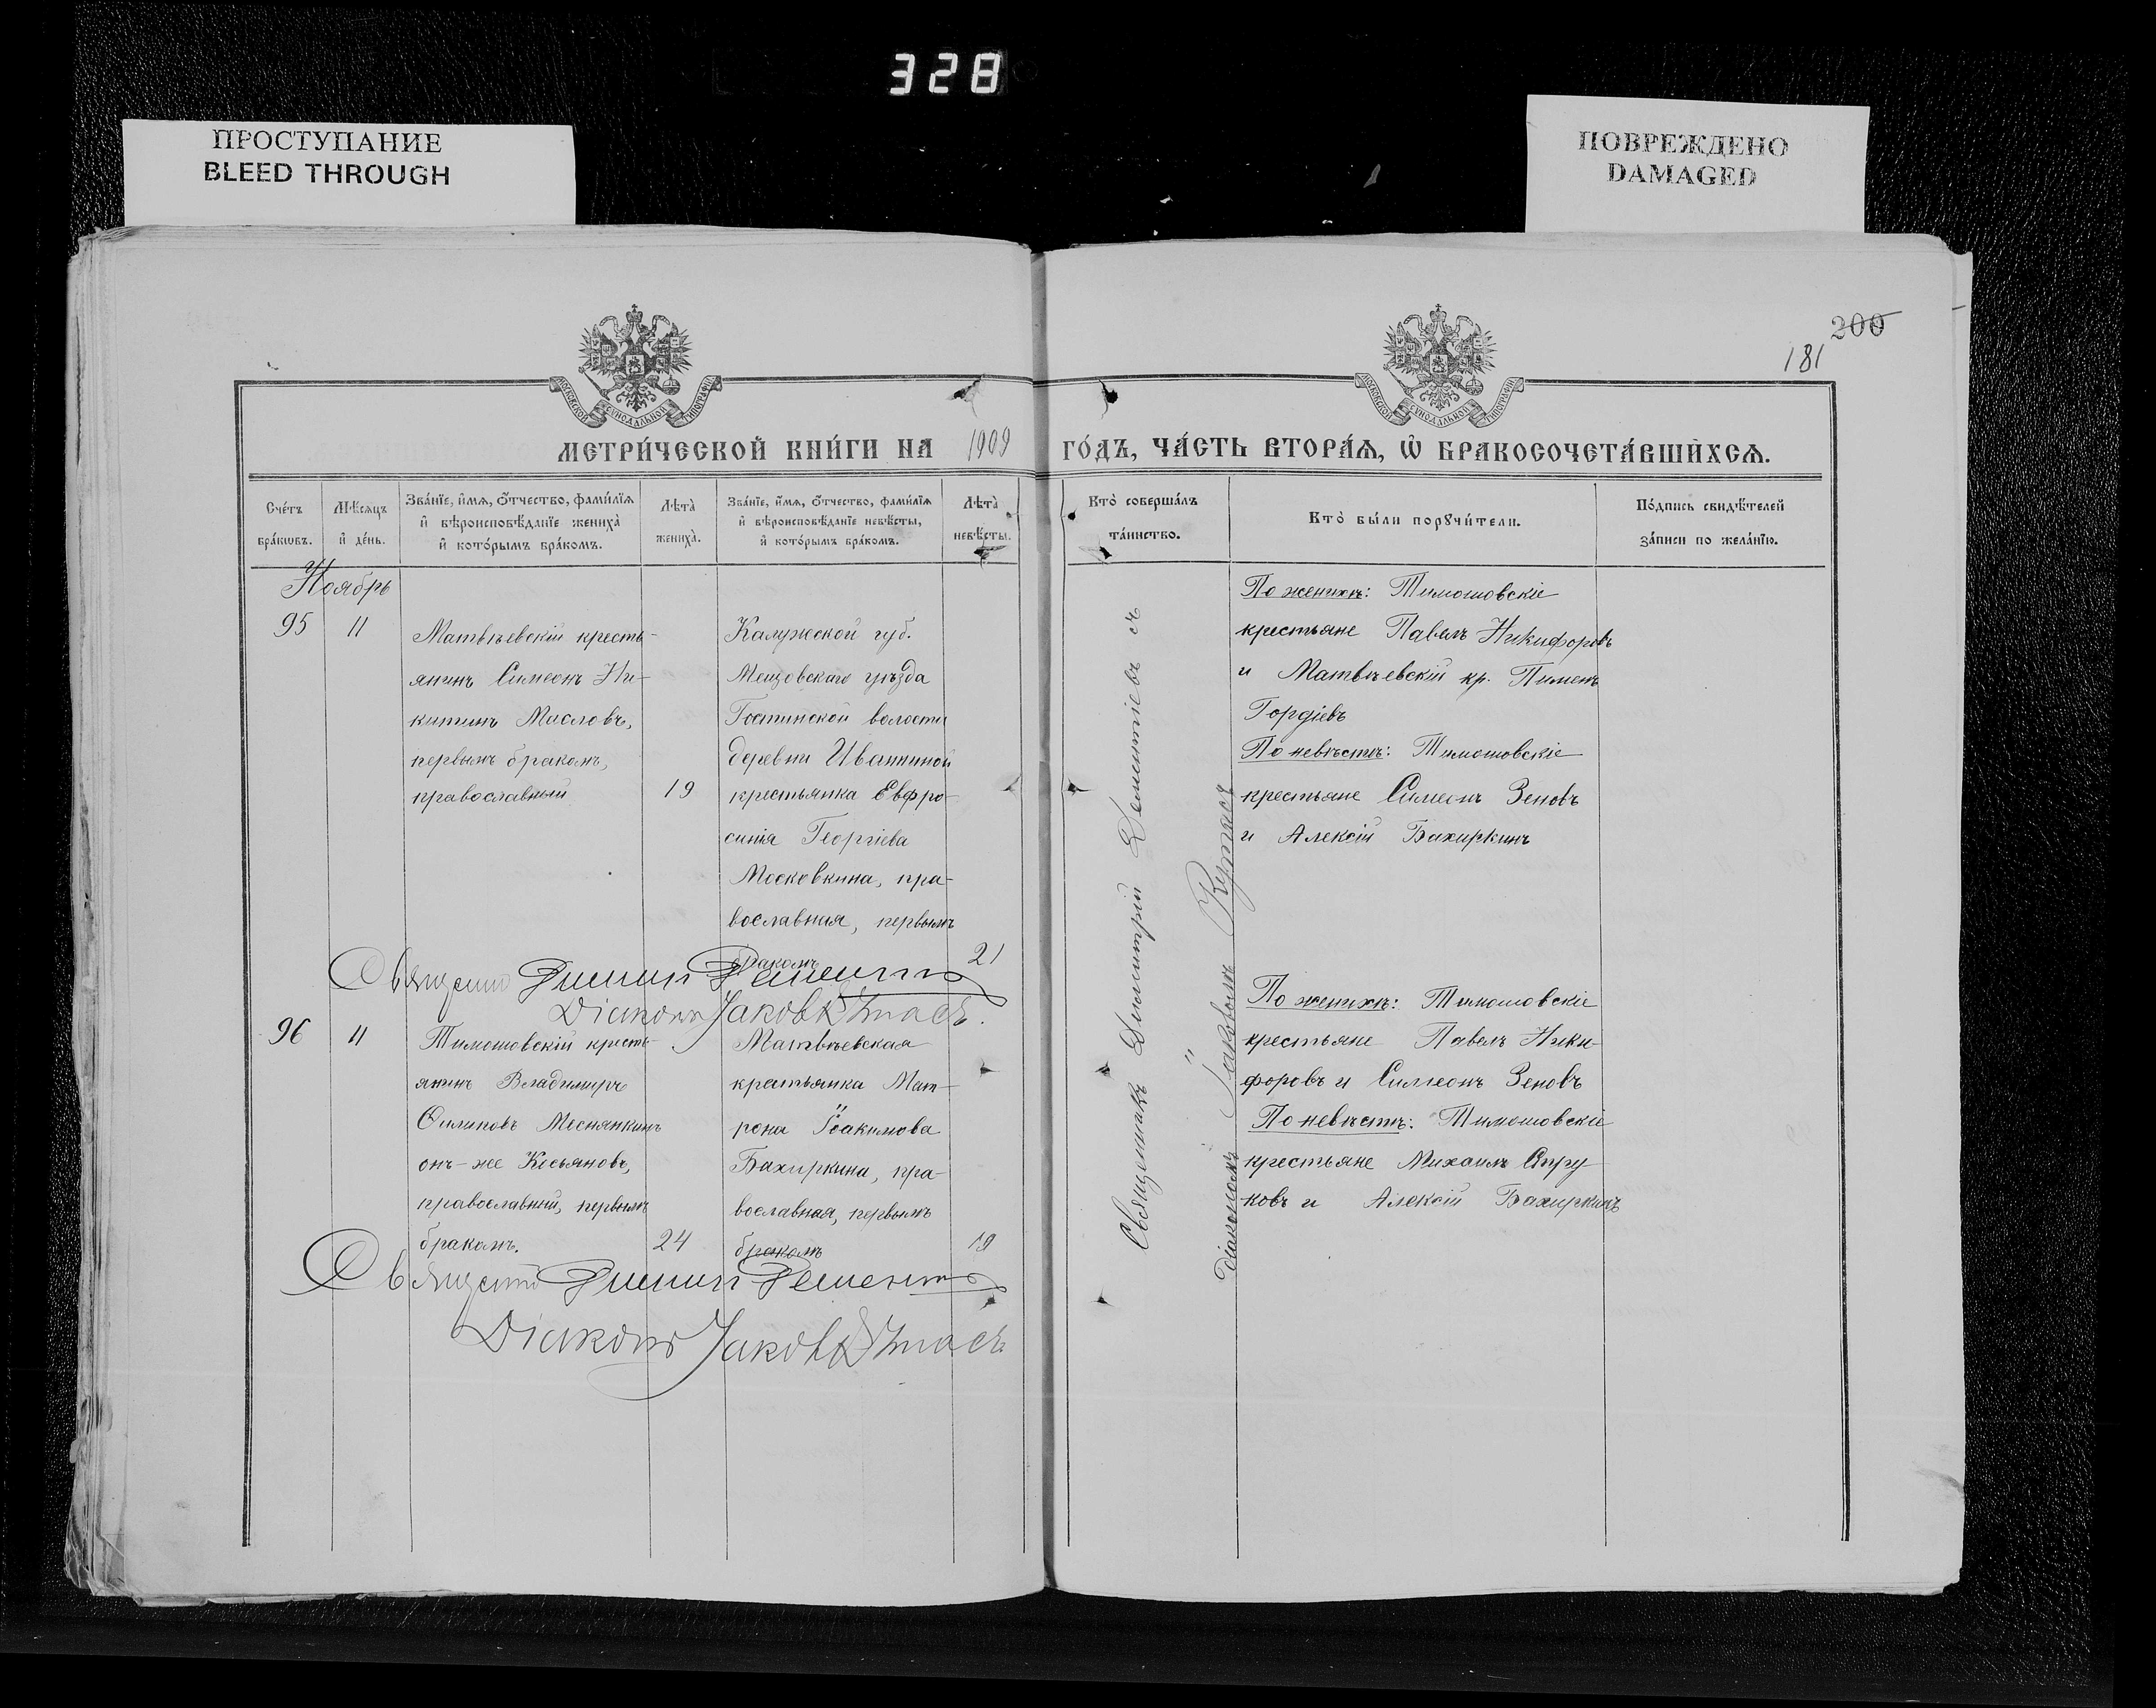 328
ПРОСТУПАНИЕ
BLEED THROUGH
ПОВРЕЖДЕНО
DAMAGED
200
181
МОСКОВСКОЙ СѴНОДАЛЬНОЙ ТИПОГРАФІИ
МОСКОВСКОЙ СѴНОДАЛЬНОЙ ТИПОГРАФІИ
МЕТРИ́ЧЕСКОЙ КНИ́ГИ НА 1909 ГО́ДЪ, ЧА́СТЬ ВТОРА́Ѧ, Ѽ БРАКОСОЧЕТА́ВШИХСѦ.
Сче́тъ
бра́кѡвъ.
Мѣ́сѧцъ
и҆ де́нь.
Зва́нїе, и҆́мѧ, ѻ҆́тчество, фами́лїѧ
и҆ вѣроисповѣ́данїе жениха̀
и҆ кото́рымъ бра́комъ.
Лѣ́та̀
жениха̀.
Зва́нїе, и҆́мѧ, ѻ҆́тчество, фами́лїѧ
и҆ вѣроисповѣ́данїе невѣ́сты,
и҆ кото́рымъ бра́комъ.
Лѣ́та̀
невѣ́сты.
Кто̀ соверша́лъ
та́инство.
Кто̀ бы́ли порꙋчи́тели.
По́дпись свидѣ́телей
за́писи по жела́нїю.
Ноябрь
95
11
Матвѣевскій кресть-
янинъ Симеонъ Ни-
китинъ Масловъ,
первымъ бракомъ,
православный
19
Калужской губ.
Мещовскаго уѣзда
Гостинской волости
деревни Иваниной
крестьянка Евфро-
синія Георгіева
Московкина, пра-
вославная, первымъ
бракомъ
21
Священникъ Димитрій Дементіевъ съ
Діакономъ Іаковымъ
По женихѣ: Тимошовскіе
крестьяне Павелъ Никифоровъ
и Матвѣевскій кр. Пименъ
Гордіевъ
По невѣстѣ: Тимошовскіе
крестьяне Симеонъ Зеновъ
и Алексій Бахиркинъ
Діаконъ Іаковъ
96
11
Тимошовскій кресть-
янинъ Владимиръ
Филиповъ Меснянкинъ
онъ-же Косьяновъ,
православный, первымъ
бракомъ.
24
Матвѣевская
крестьянка Мат-
рона Іоакимова
Бахиркина, пра-
вославная, первымъ
бракомъ
19
По женихѣ: Тимошовскіе
крестьяне Павелъ Ники-
форовъ и Симеонъ Зеновъ
По невѣстѣ: Тимошовскіе
крестьяне Михаилъ Стру
ковъ и Алексій Бахиркинъ
Діаконъ Іаковъ